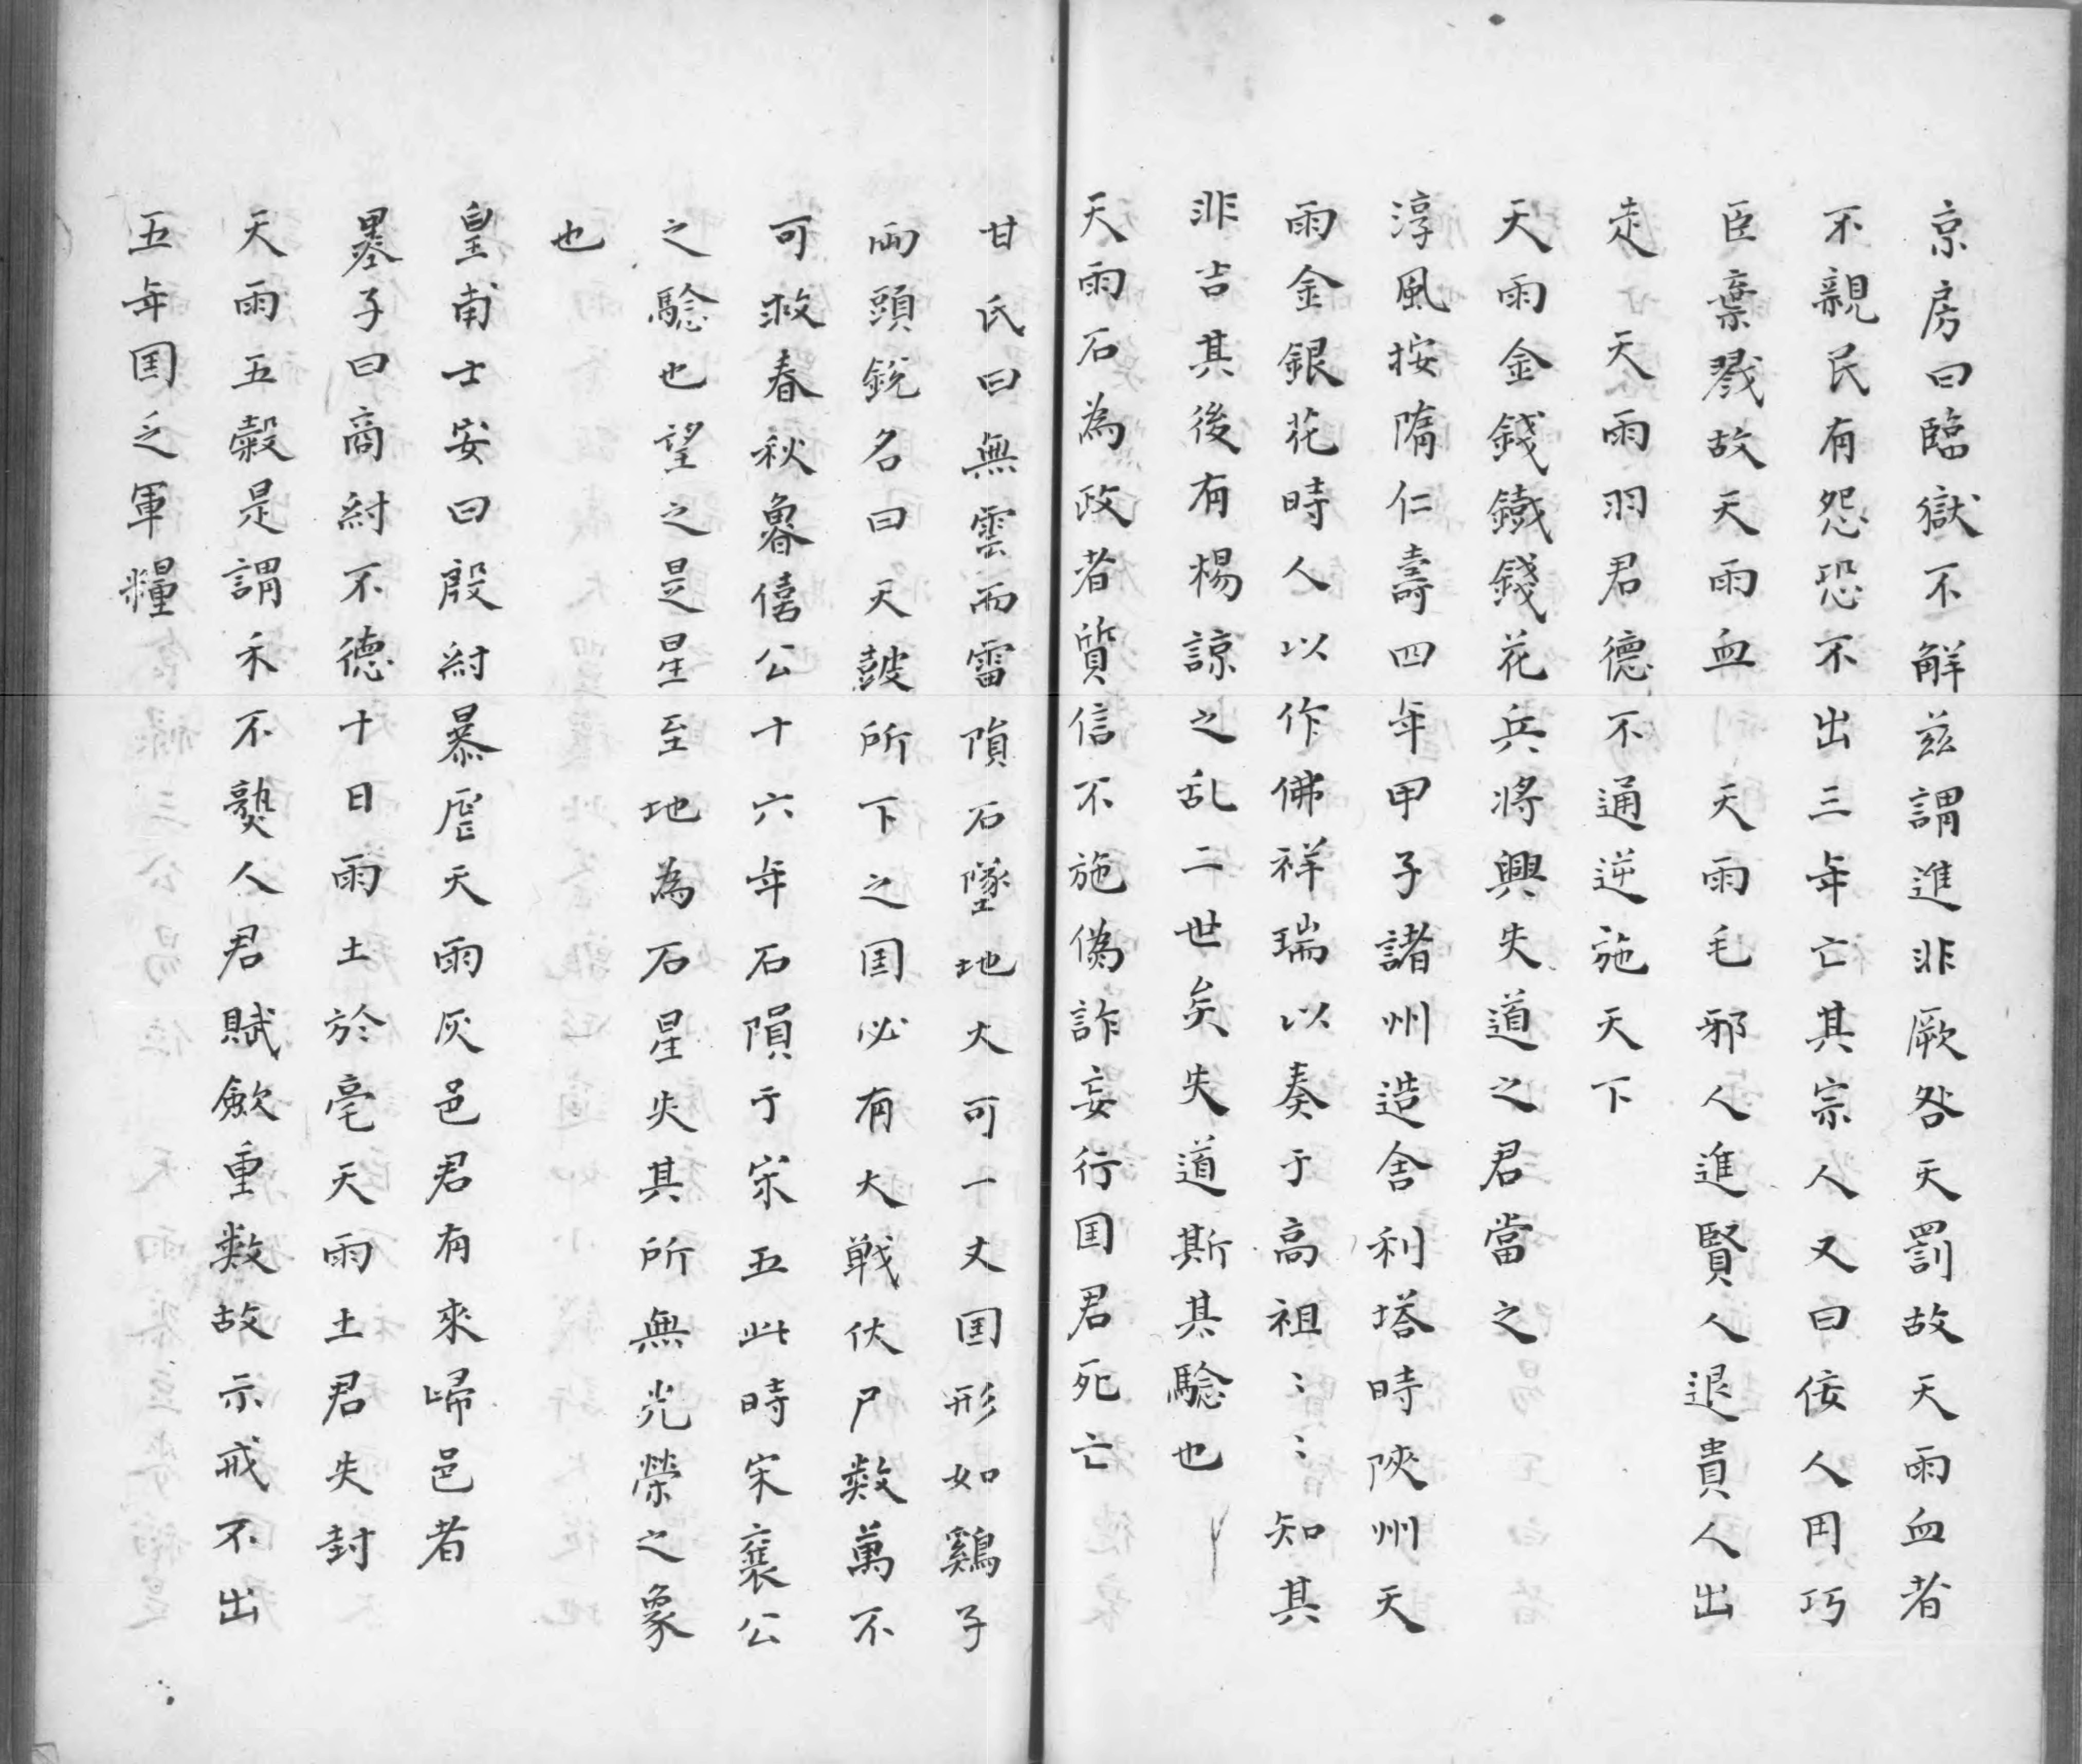 京房曰臨獄不觧茲謂進非厥咎天罰故天雨血者
不親民有怨恐不出三年亡其宗人又曰佞人用巧
臣棄戮故天雨血　天雨毛邪人進賢人退貴人出
走　天雨羽君德不通逆施天下
天雨金錢鐵錢花兵將興失道之君當之
淳風按隋仁壽四年甲子諸州造舍利塔時陝州天
雨金銀花時人以作佛祥瑞以奏于高祖〻〻知其
非吉其後有楊諒之乱二世矣失道斯其騐也
天雨石為政者質信不施偽詐妄行囯君死亡
甘氏曰無雲而雷隕石墜地大可一丈囯形如鷄子
兩頭銳名曰天皷所下之囯必有大戰伏尸数萬不
可救春秋魯僖公十六年石隕于宋五此時宋襄公
之騐也望之是星至地為石星失其所無光榮之象
也
皇甫士安曰殷紂暴虐天雨灰邑君有來歸邑者
墨子曰商紂不德十日雨土於亳天雨土君失封
天雨五穀是謂禾不熟人君賦斂重数故示戒不出
五年囯乏軍糧